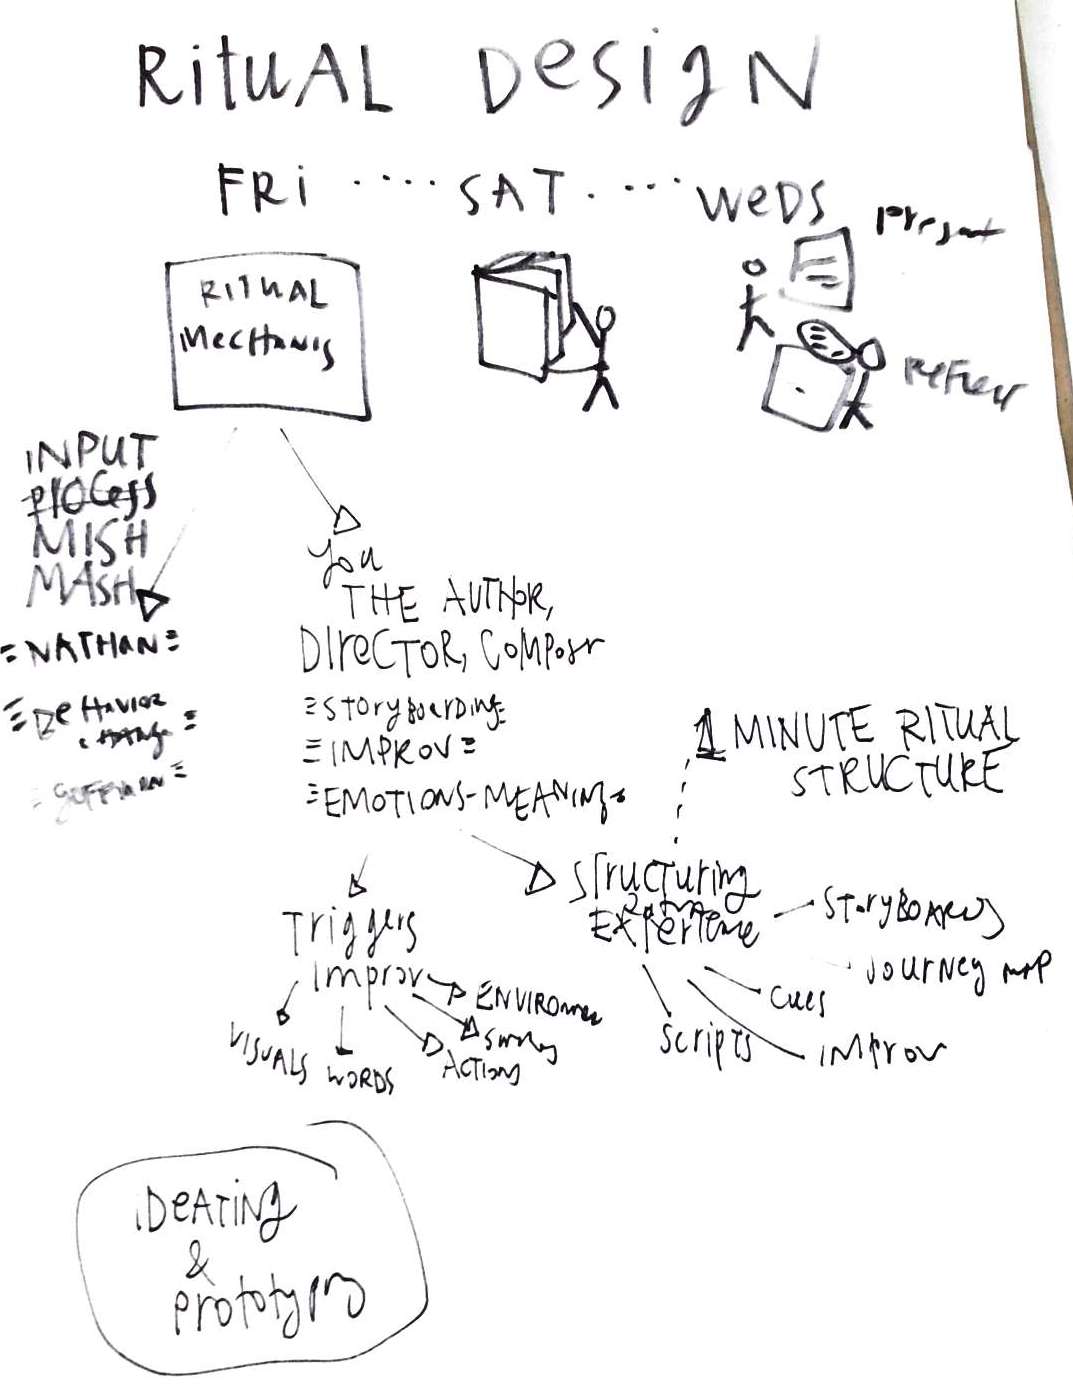 RITUAL DESIGN
FRI ···· SAT ···· WEDS
Present
RITUAL
MECHANIS
INPUT
PROCESS
MISH
MASH
=NATHAN=
BEHAVIOR
CHANGE
GOFFMAN
You
THE AUTHOR,
DIRECTOR, COMPOSr
=STORYBOARDING=
=IMPROV=
=EMOTIONS-MEANINGS
1 MINUTE RITUAL
STRUCTURE
Structuring
EXPERIENCE
STORYBOARDS
JOURNEY MAP
CUES
IMPROV
Scripts
Triggers
Improv
ENVIRONMEN
ACTIONS
WORDS
VISUALS
IDEATING
&
PROTOTYPING